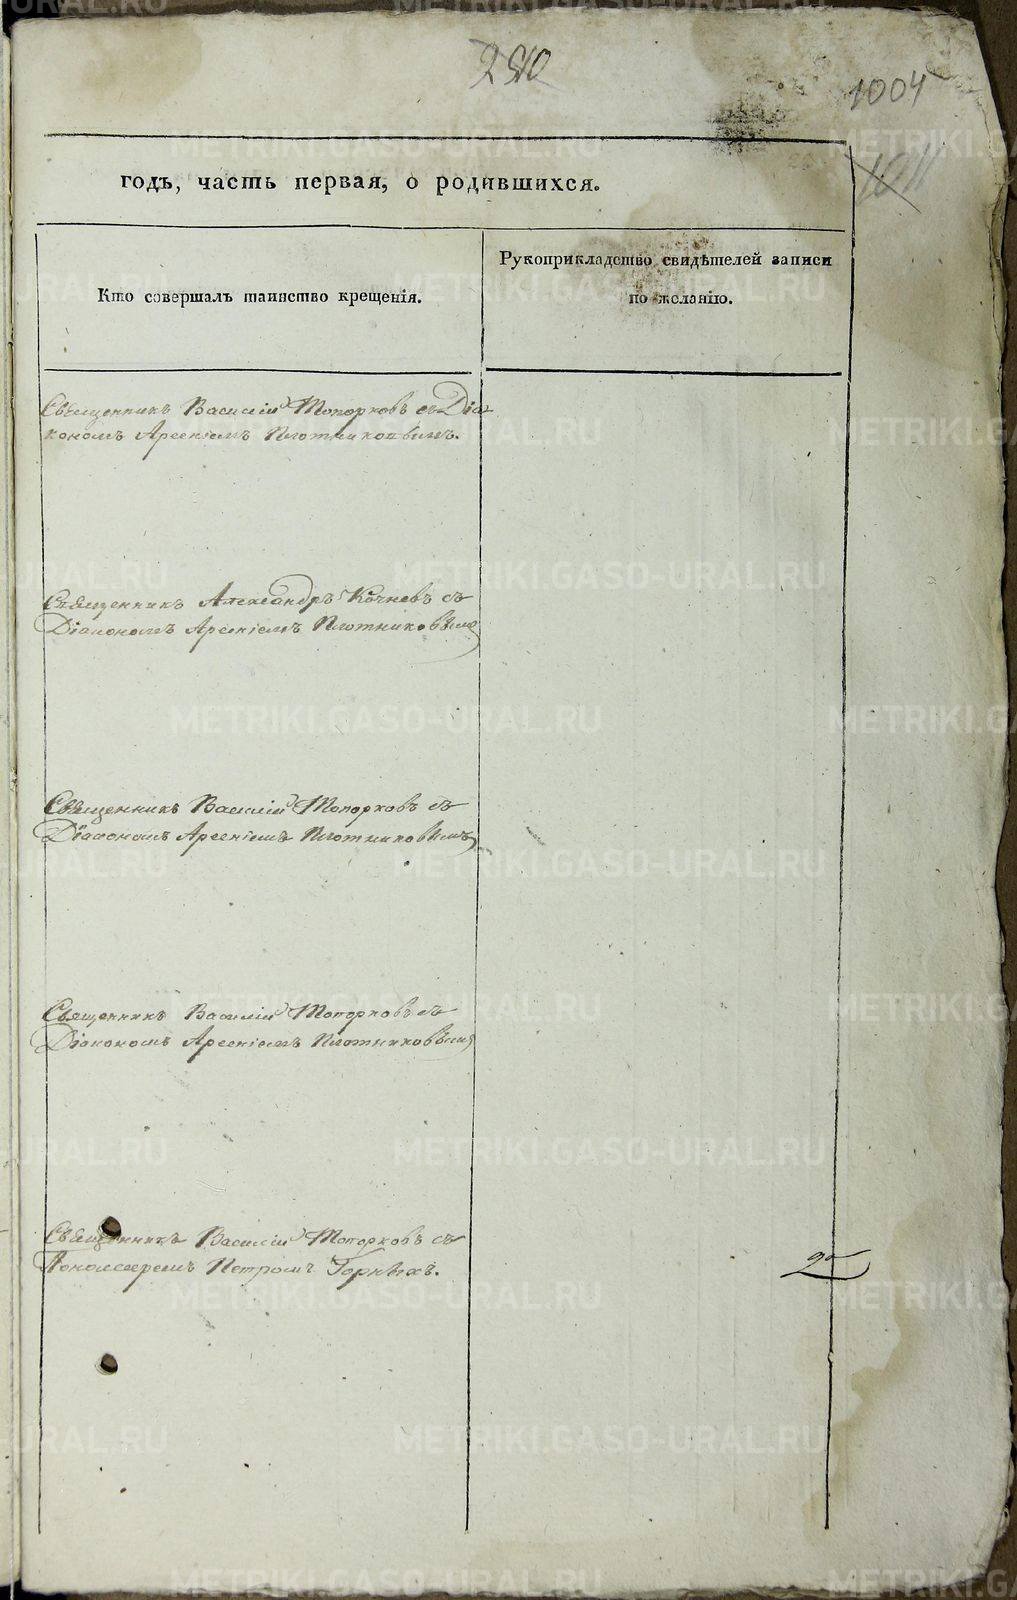 290
1004
1011
годъ, часть первая, о родившихся.
Кто совершалъ таинство крещенія.
Рукоприкладство свидѣтелей записи
по желанію.
Священникъ Василій Топорковъ съ Діа
кономъ Арсеніемъ Плотниковымъ.
Священникъ Александръ Кочневъ съ
Діакономъ Арсеніемъ Плотниковымъ
Священникъ Василій Топорковъ съ
Діакономъ Арсеніемъ Плотниковымъ
Священникъ Василій Топорковъ съ
Діакономъ Арсеніемъ Плотниковымъ
Священникъ Василій Топорковъ съ
Пономаремъ Петромъ Горныхъ.
METRIKI.GASO-URAL.RU